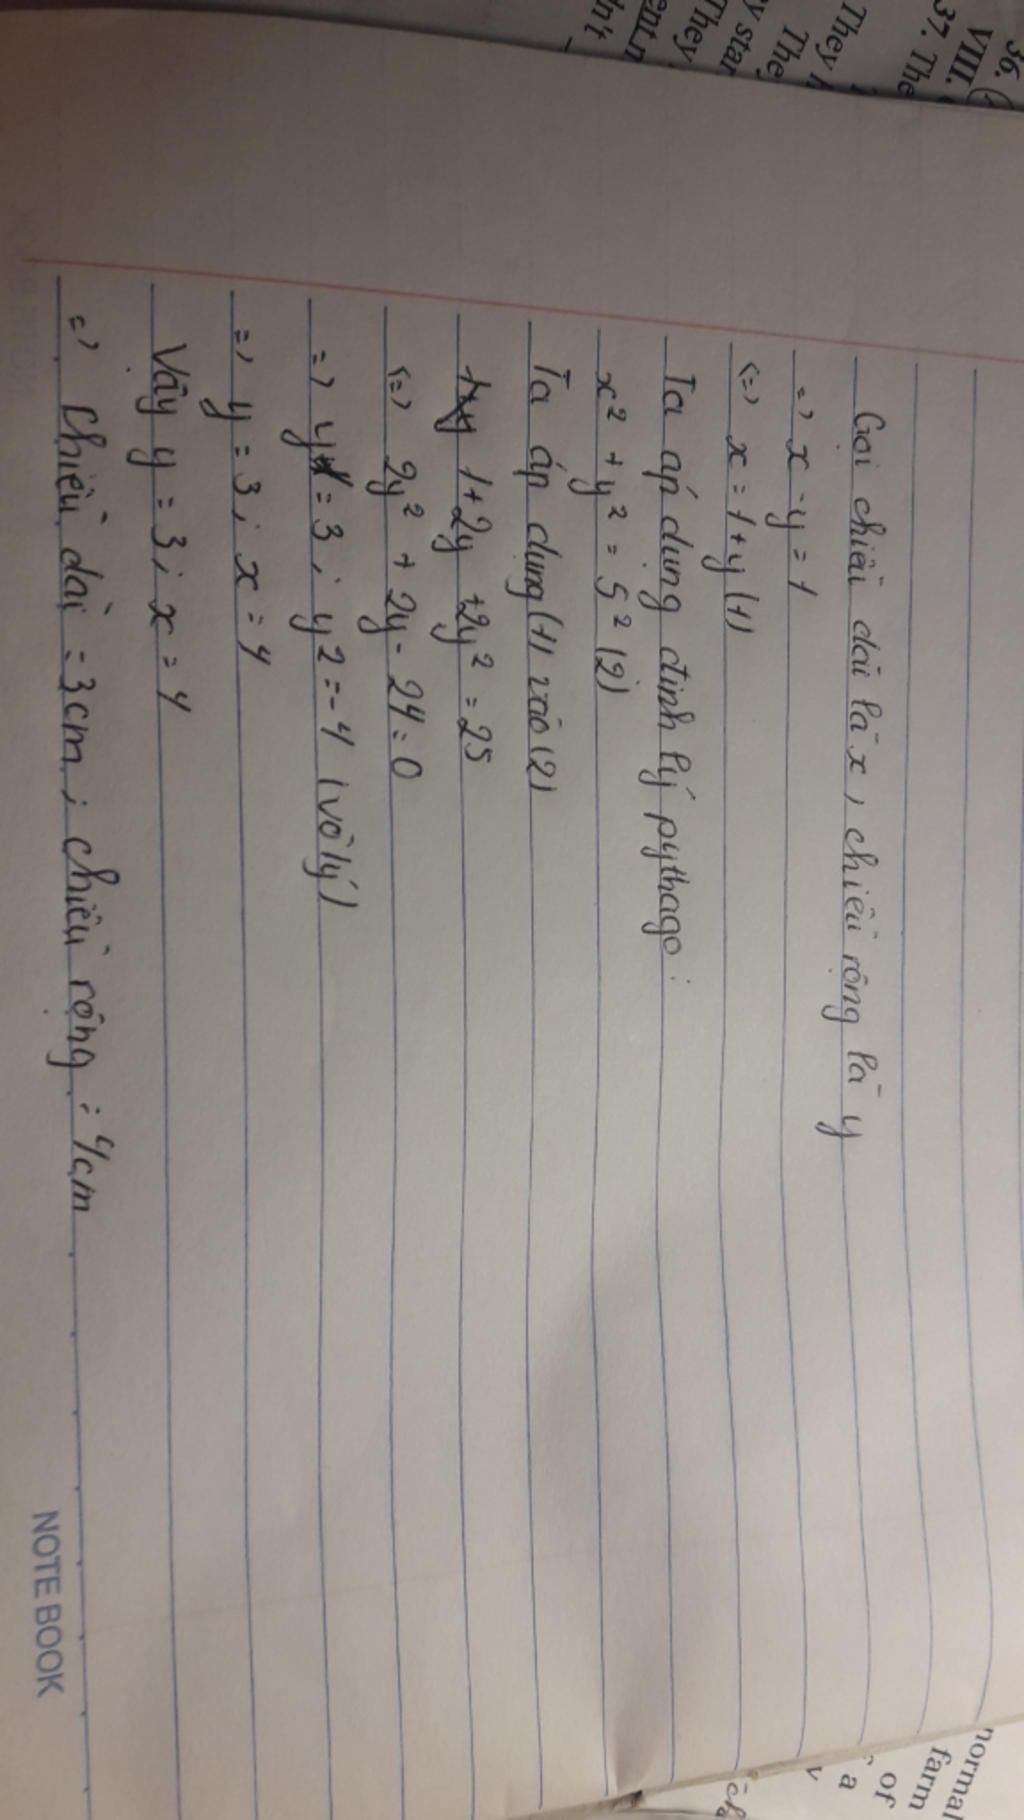 36.
VIII.
37. The
They h
The
y star
They
ent.n
dn't
Gọi chiều dài là x, chiều rộng là y
=> x - y = 1
<=> x = 1 + y (1)
Ta áp dụng định lý pythago:
x² + y² = 5² (2)
Ta áp dụng (1) vào (2)
1 + 2y + 2y² = 25
<=> 2y² + 2y - 24 = 0
=> y1 = 3; y2 = -4 (vô lý)
=> y = 3; x = 4
Vậy y = 3; x = 4
=> Chiều dài = 3cm; chiều rộng = 4cm
NOTE BOOK
normal
farm
of
a